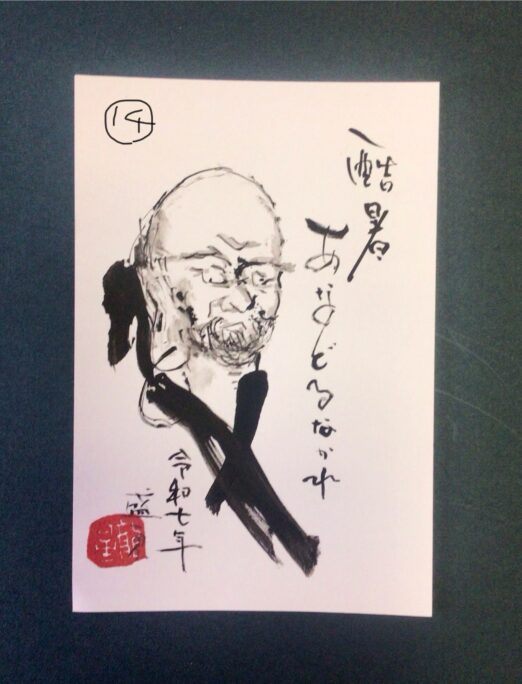 14
酷暑
あなどるなかれ
令和七年